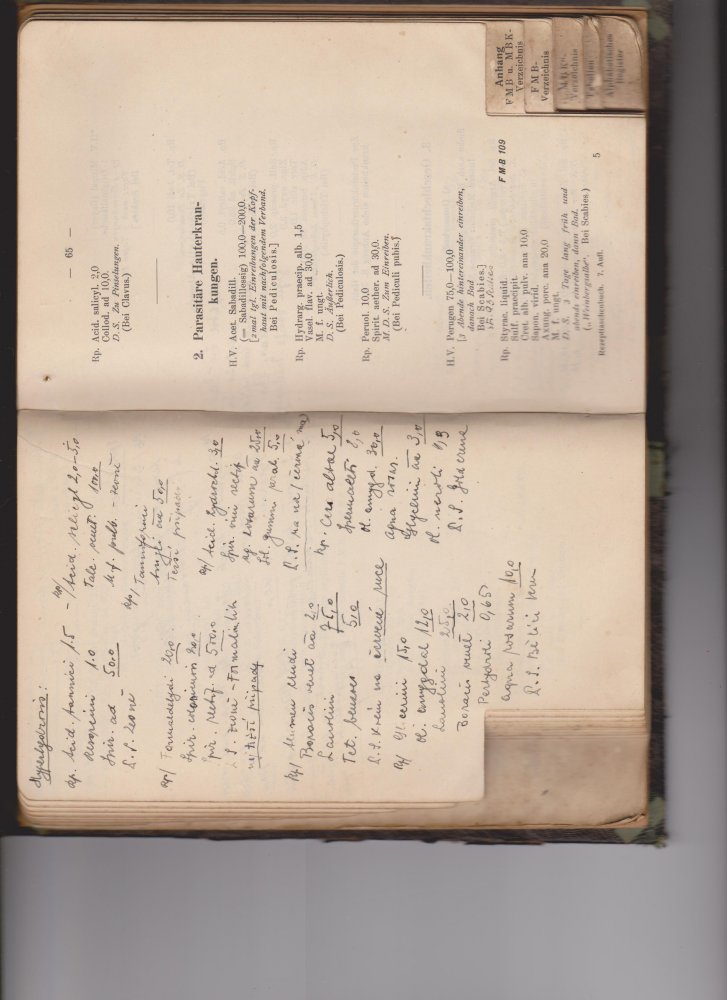 Hyperhydrosis:
Rp. Acid. tannici 1.5
Resorcini 1.0
Spir. ad 50.0
D.S. Zevně
Rp/ Formaldehydi 20,0
Spir. coloniensis 20,0
Spir. rectif. ad 500,0
D.S. Zevně - Formalinlih
nejtěžší případy
Rp/ Alumen crudi
Boracis venet. aa 2,0
Lanolini 75,0
Tct. benzoes 5,0
D.S. Krém na červené ruce
Rp/ Glycerini 15,0
Ol. amygdal 12,0
Lanolini 25,0
Boracis venet 2,0
Perhydroli 0,65
aqua rosarum 10,0
D.S. Bělící krem
Rp/ Acid. salicyl 2,0-5,0
Talc. venet. 100,0
M.f. pulv. - zevně
Rp/ Tannoformii
Amyli aa 50,0
D.S.
Těžší případ
Rp/ Acid. hydrochl. 3,0
Spir. vini rectif
aq. rosarum aa 25,0
Sol. gummi arab. 5,0
D.S. na
Rp. Cera albae 5,0
Spermaceti 8,0
Ol. amygd. 30,0
aqua rosar.
Glycerini aa 3,0
Ol. neroli 0,9
D.S. Gold creme
— 65 —
Rp. Acid. salicyl. 2,0
Collod. ad 10,0.
D. S. Zu Pinselungen.
(Bei Clavus.)
2. Parasitäre Hauterkran-
kungen.
H.V. Acet. Sabadill.
(= Sabadillessig) 100,0—200,0.
[2 mal tgl. Einreibungen der Kopf-
haut mit nachfolgendem Verband.
Bei Pediculosis.]
Rp. Hydrarg. praecip. alb. 1,5
Vasel. flav. ad 30,0
M. f. ungt.
D. S. Äußerlich.
(Bei Pediculosis.)
Rp. Peruol. 10,0
Spirit. aether. ad 30,0.
M. D. S. Zum Einreiben.
(Bei Pediculi pubis.)
H.V. Perugen 75,0—100,0
[3 Abende hintereinander einreiben,
danach Bad.
Bei Scabies.]
Rp. Styrac. liquid. FMB 109
Sulf. praecipit.
Cret. alb. pulv. ana 10,0
Sapon. virid.
Axung. porc. ana 20,0
M. f. ungt.
D. S. 3 Tage lang früh und
abends einreiben, dann Bad.
(„Wernbergsalbe“. Bei Scabies.)
Rezepttaschenbuch. 7. Aufl. 5
Anhang
FMB u. MBK-
Verzeichnis
FMB-
Verzeichnis
MBK-
Verzeichnis
Alphabetisches
Register